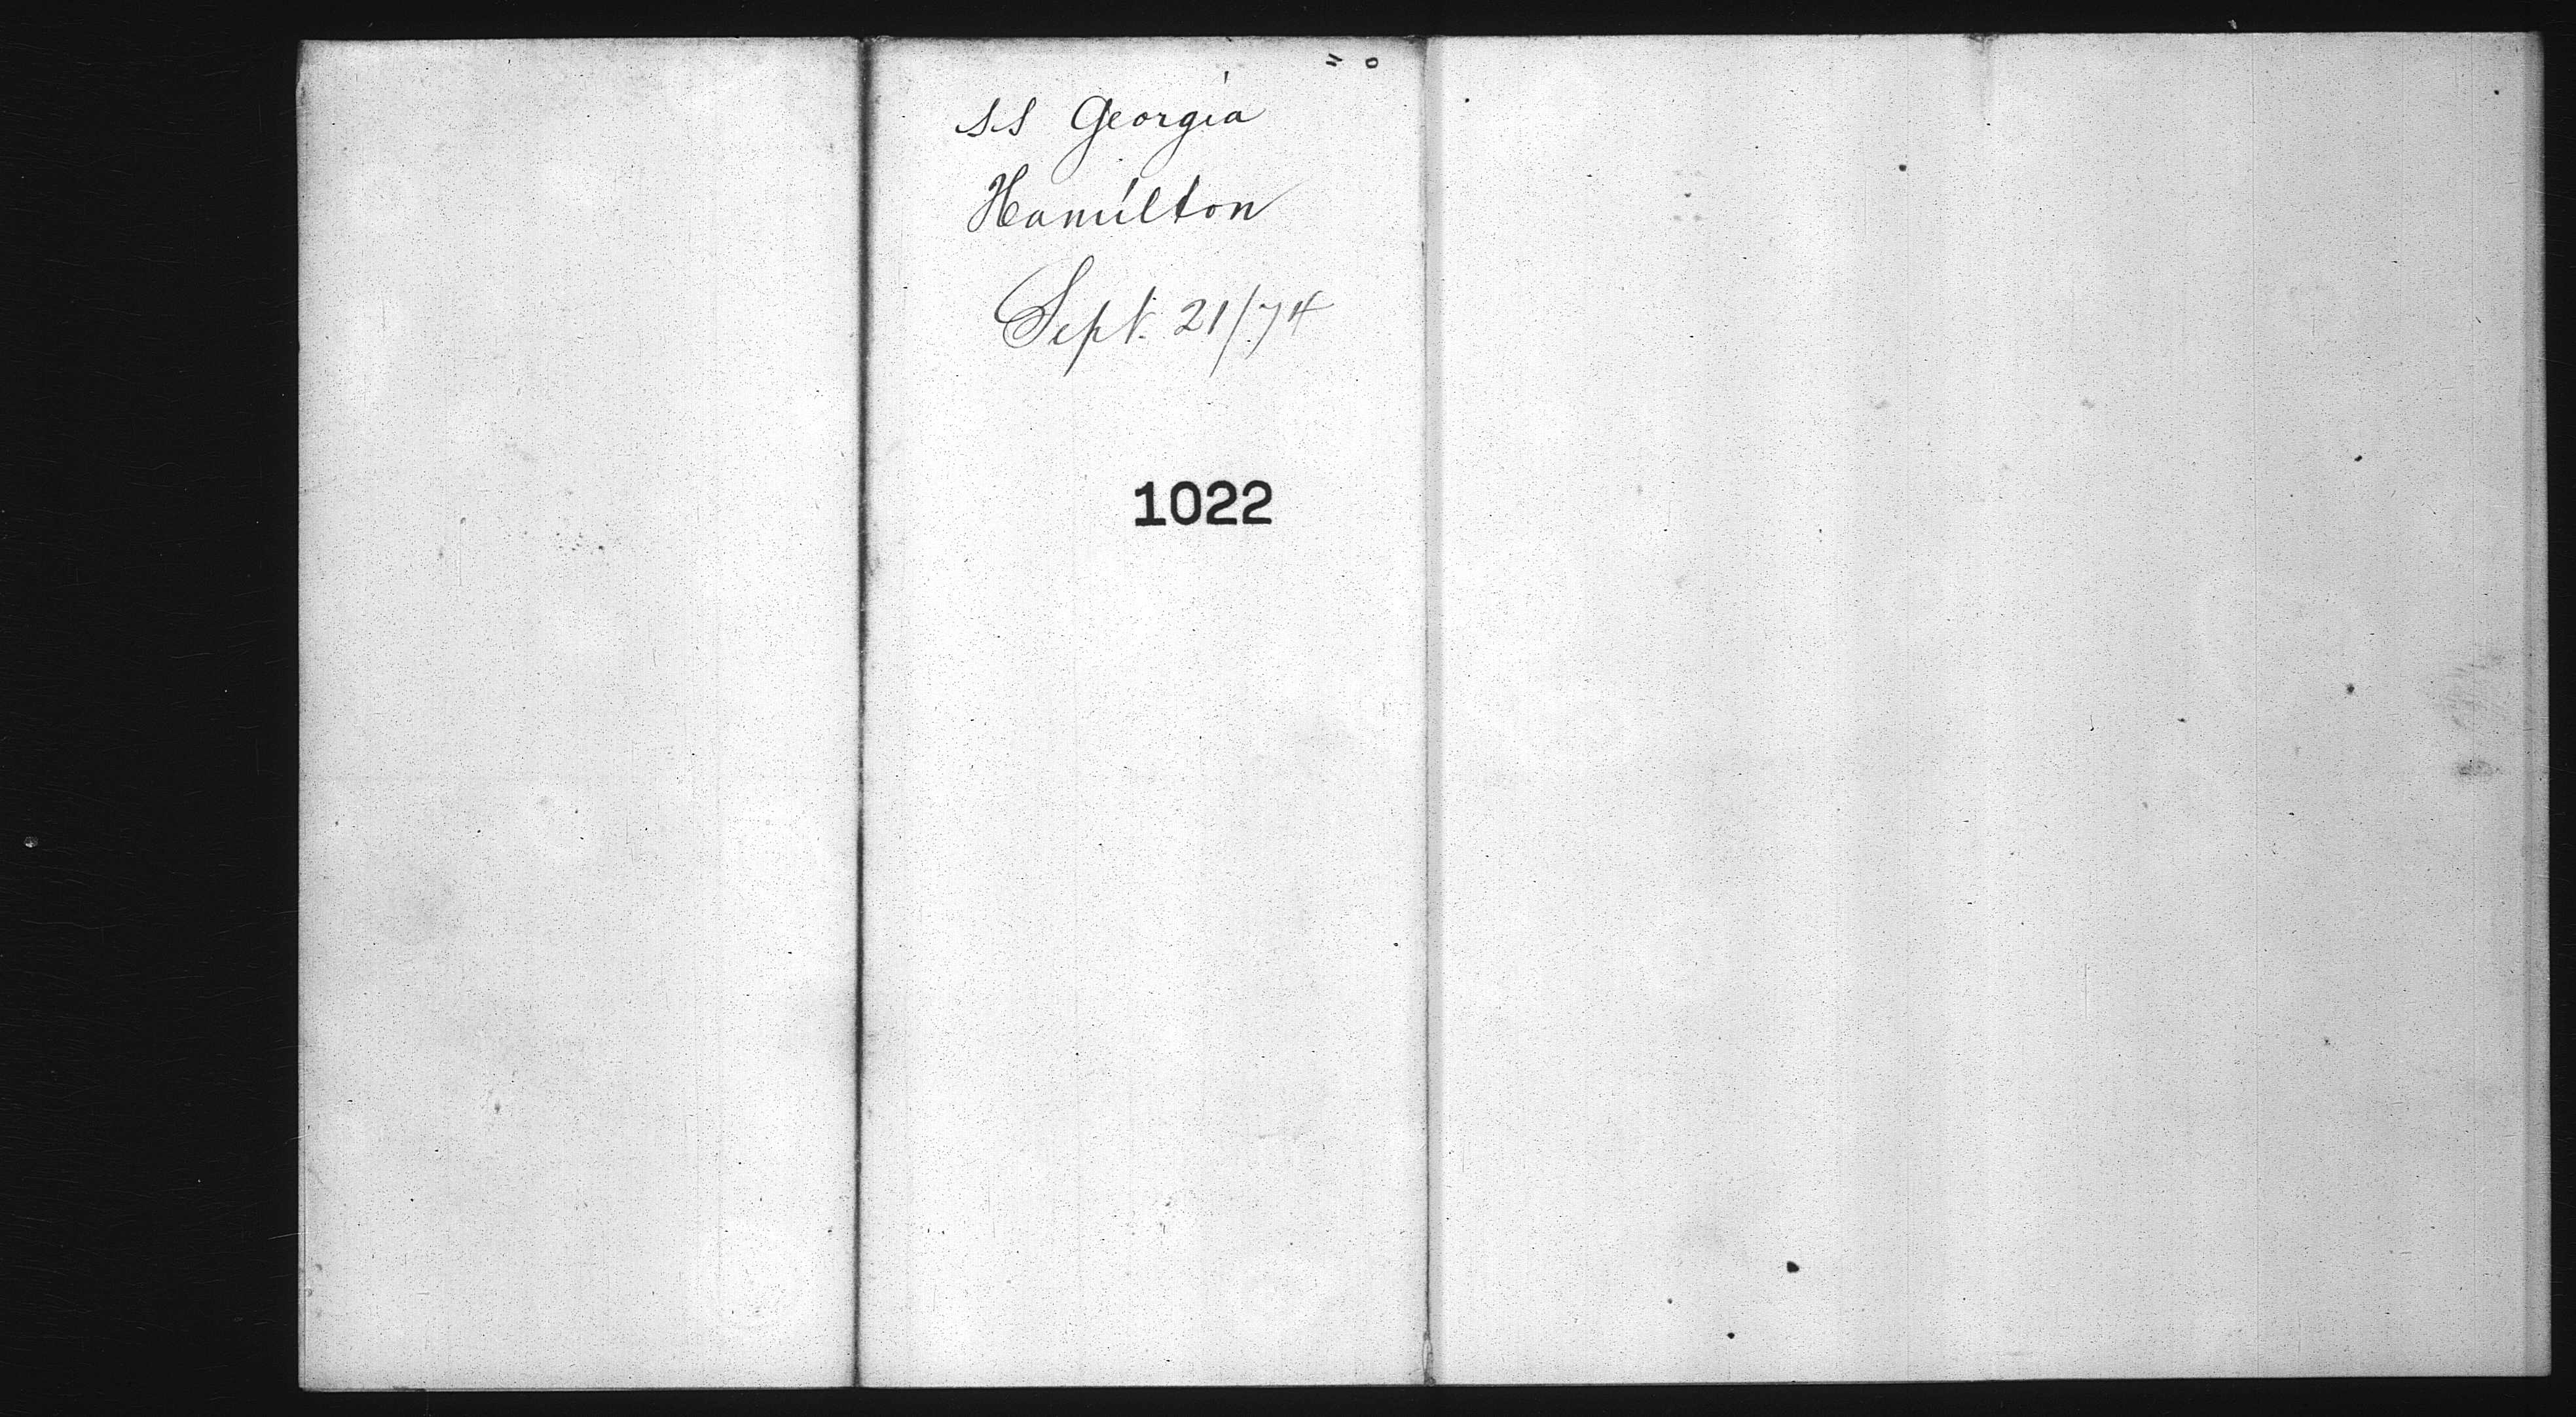 SS Georgia
Hamilton
Sept. 21/74
1022